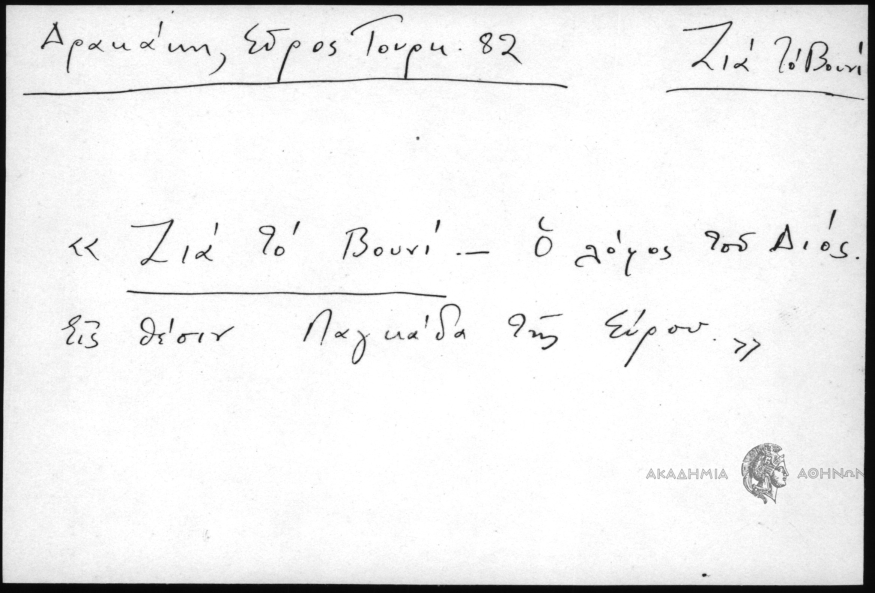 Δρακάκη, Σῦρος Τουρκ. 82
Ζιά τό Βουνί
«Ζιά τό Βουνί – Ὁ λόφος τοῦ Διός.
Εἰς θέσιν Λαγκάδα τῆς Σύρου.»
ΑΚΑΔΗΜΙΑ ΑΘΗΝΩΝ